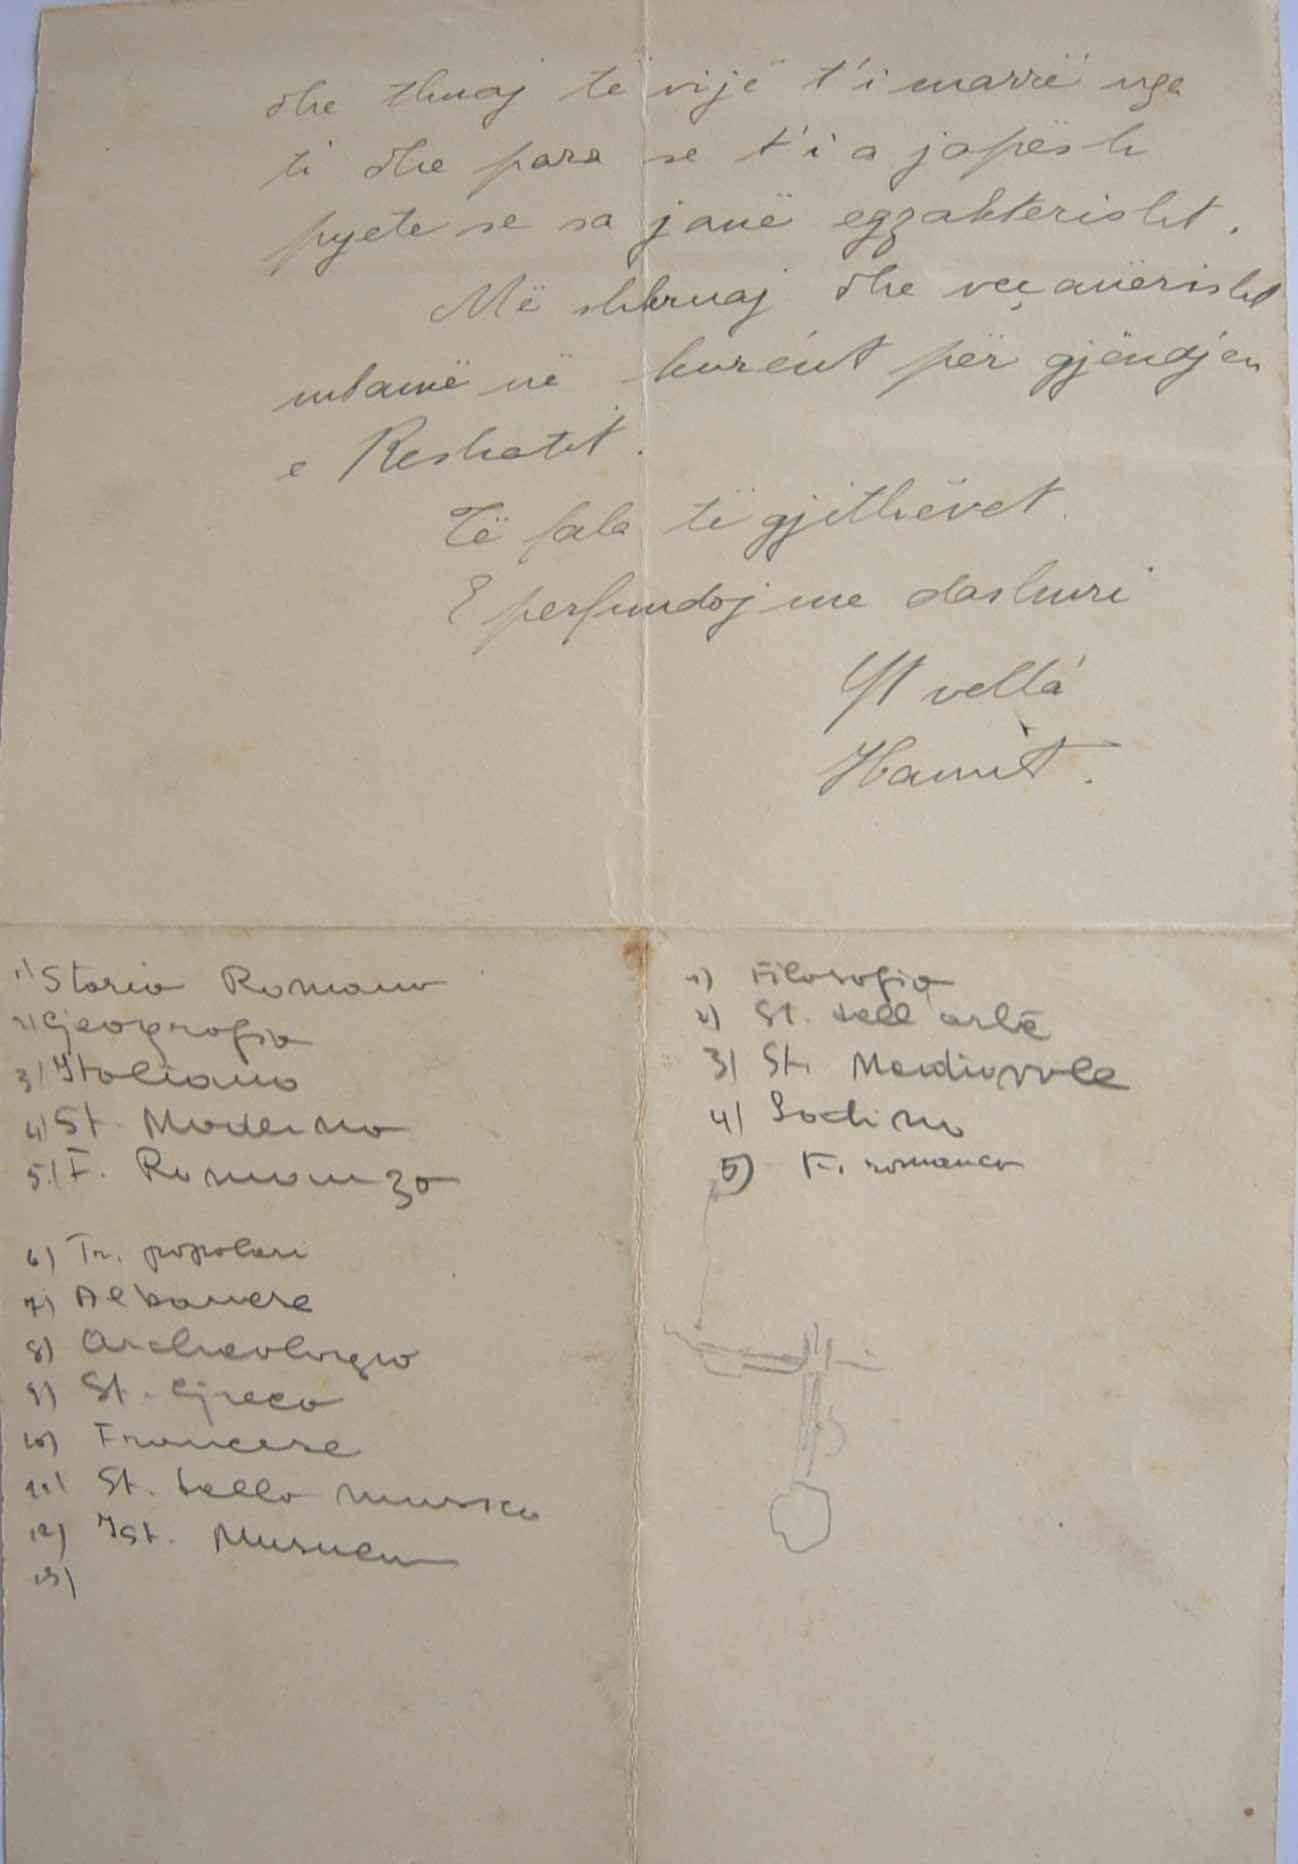 dhe thuaj të vijë t'i marrë nga
ti dhe para se t'i a japësh
pyete se sa janë egzaktërisht.
Më shkruaj dhe veçanërisht
mbamë në kurént për gjëndjen
e Reshatit.
Të fala të gjithëvet.
E perfundoj me dashuri
Yt vëlla
Hamit.
1) Storia Romana
2) Geografia
3) Italiano
4) St. Moderna
5) F. Romanza
6) Tr. popolari
7) Albanese
8) Archeologia
9) St. Greca
10) Francese
11) St. della musica
12) Ist.
13)
1) Filosofia
2) St. dell arte
3) St. Medievale
4) Latino
5) F. romanza